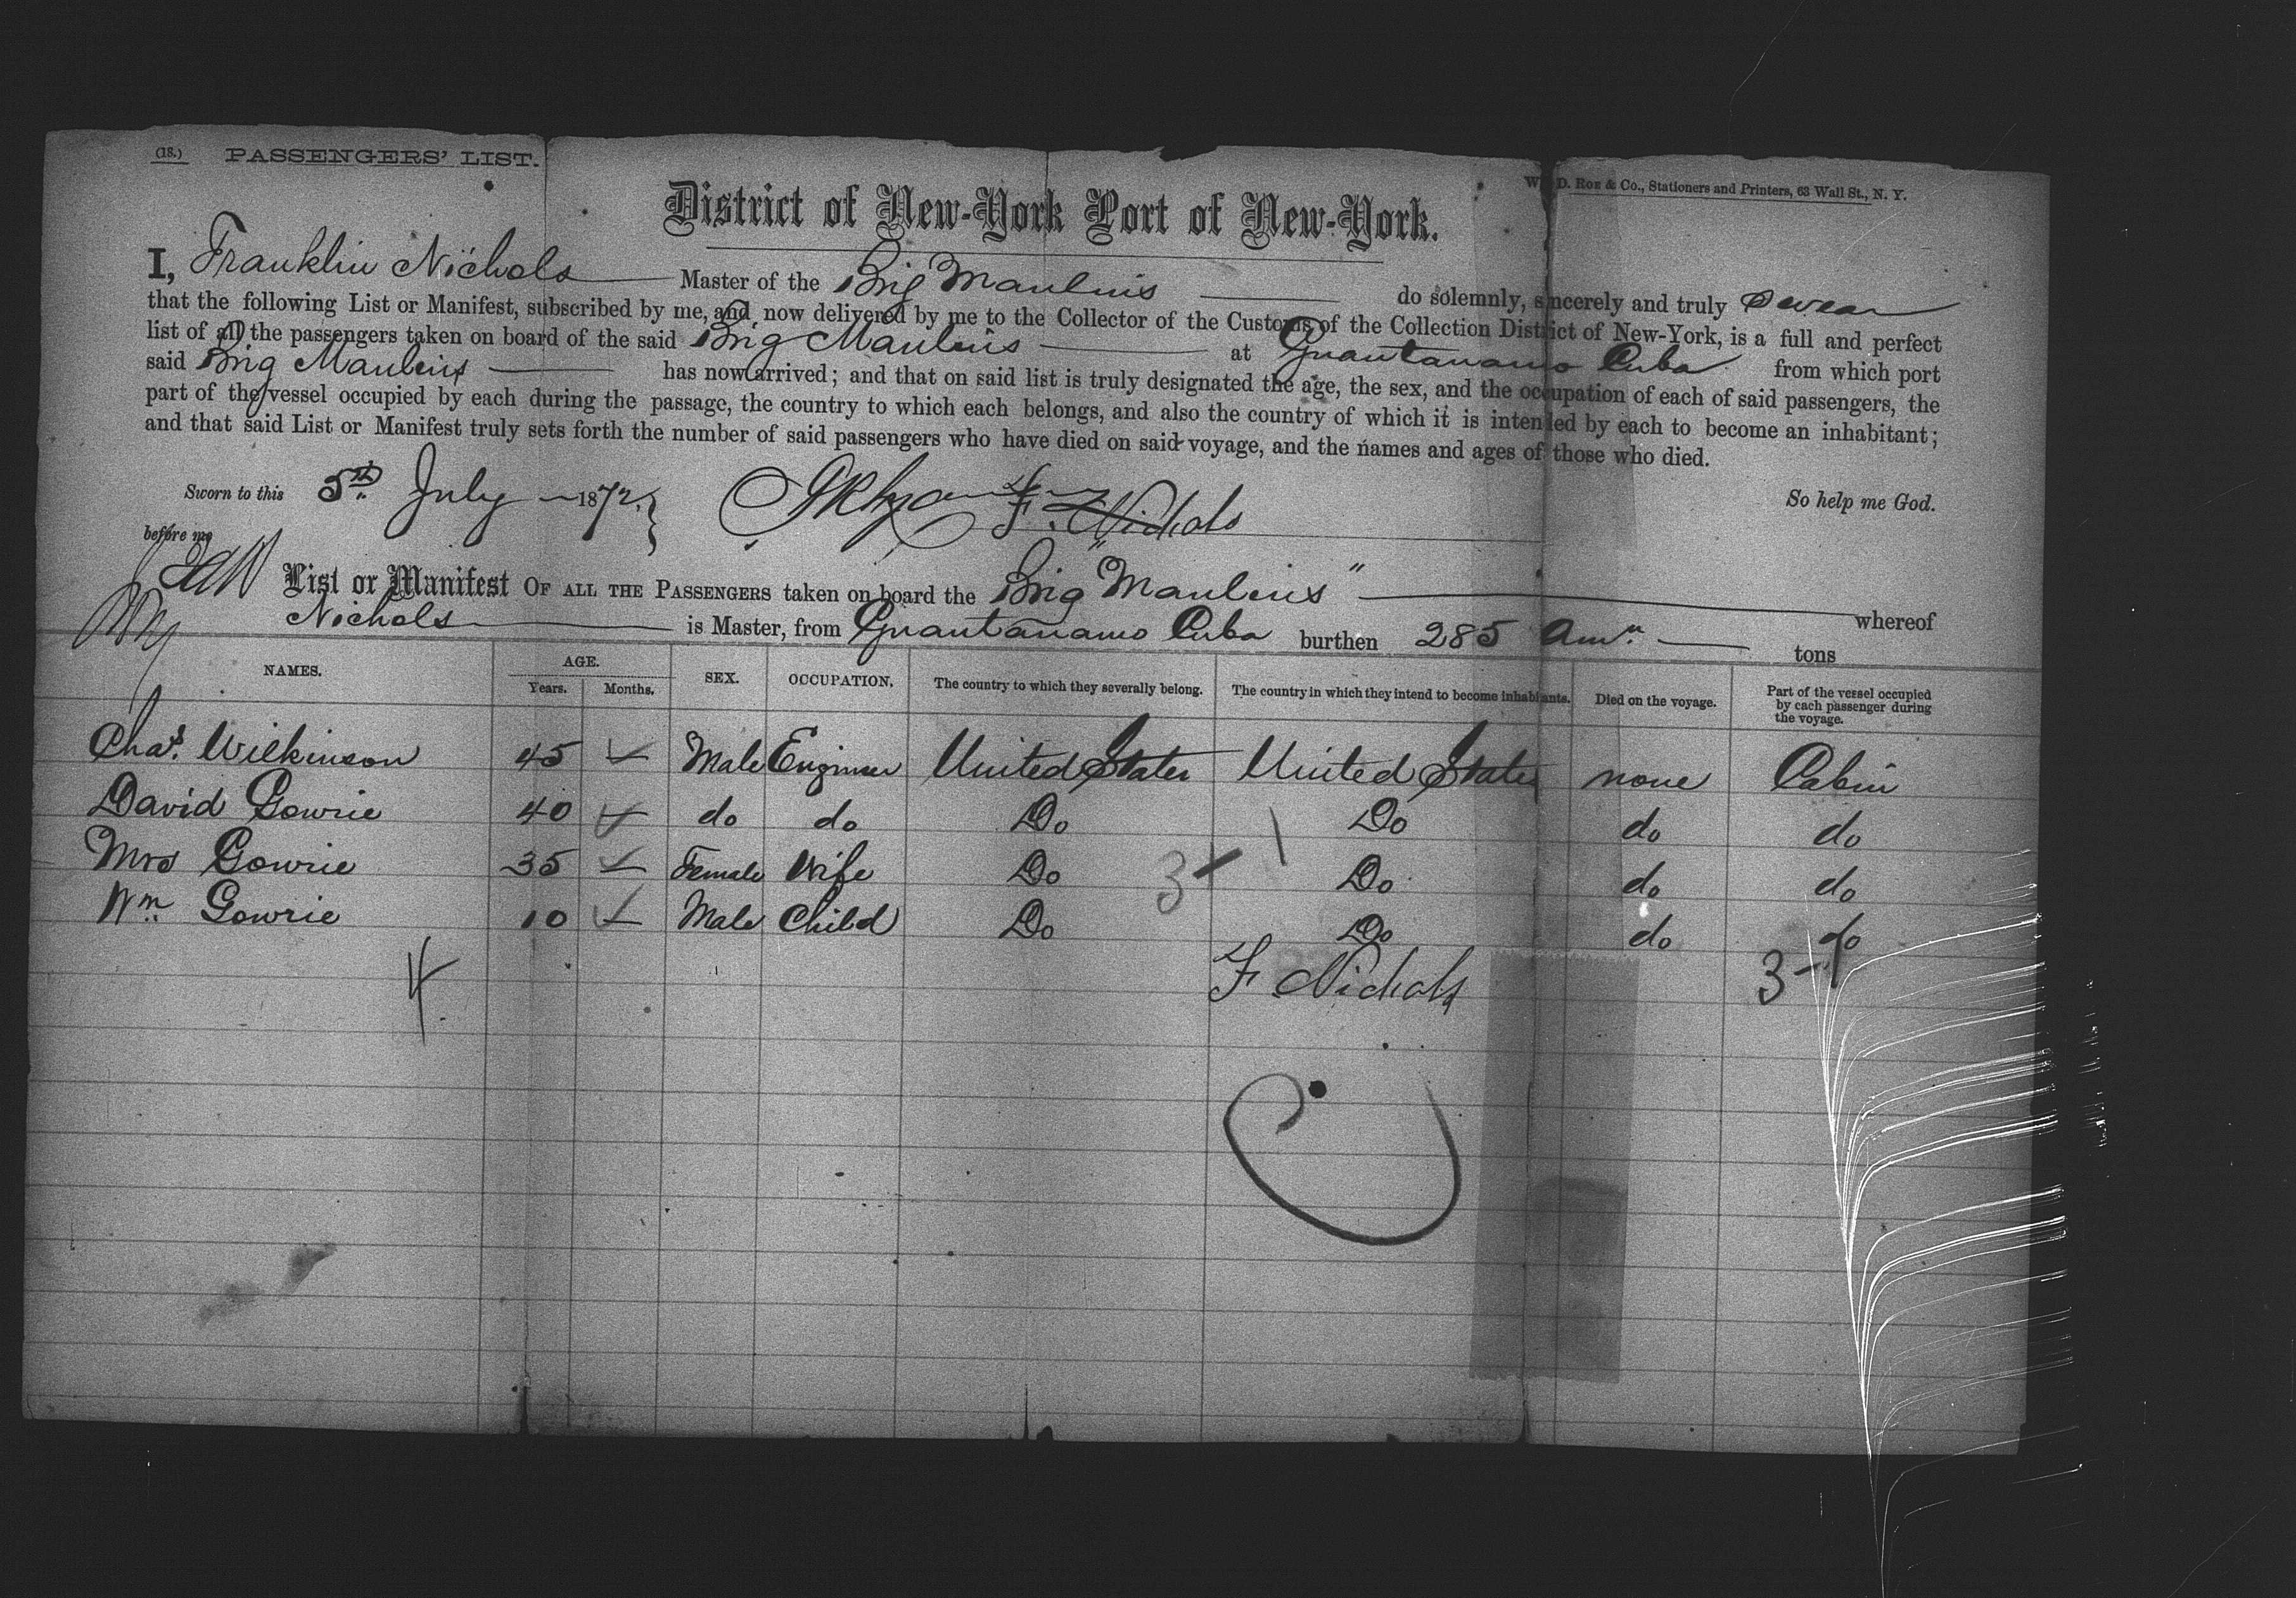 (18.) PASSENGERS' LIST.
W. D. Roe & Co., Stationers and Printers, 63 Wall St., N. Y.
District of New-York Port of New-York.
I, Franklin Nichols Master of the Brig Mauleus do solemnly, sincerely and truly swear
that the following List or Manifest, subscribed by me, and now delivered by me to the Collector of the Customs of the Collection District of New-York, is a full and perfect
list of all the passengers taken on board of the said Brig Mauleus at Guantanamo Cuba from which port
said Brig Mauleus has now arrived; and that on said list is truly designated the age, the sex, and the occupation of each of said passengers, the
part of the vessel occupied by each during the passage, the country to which each belongs, and also the country of which it is intended by each to become an inhabitant;
and that said List or Manifest truly sets forth the number of said passengers who have died on said voyage, and the names and ages of those who died.
Sworn to this 5th July 1872. F. Nichols So help me God.
before me
List or Manifest OF ALL THE PASSENGERS taken on board the Brig "Mauleus" whereof
Nichols is Master, from Guantanamo Cuba burthen 285 Amn. tons
NAMES. AGE. SEX. OCCUPATION. The country to which they severally belong. The country in which they intend to become inhabitants. Died on the voyage. Part of the vessel occupied by each passenger during the voyage.
Years. Months.
Chas. Wilkinson 45 Male Engineer United States United States none Cabin
David Gowrie 40 do do Do Do do do
Mrs Gowrie 35 Female Wife Do Do do do
Wm Gowrie 10 Male Child Do Do do do
4 F Nichols 3-1